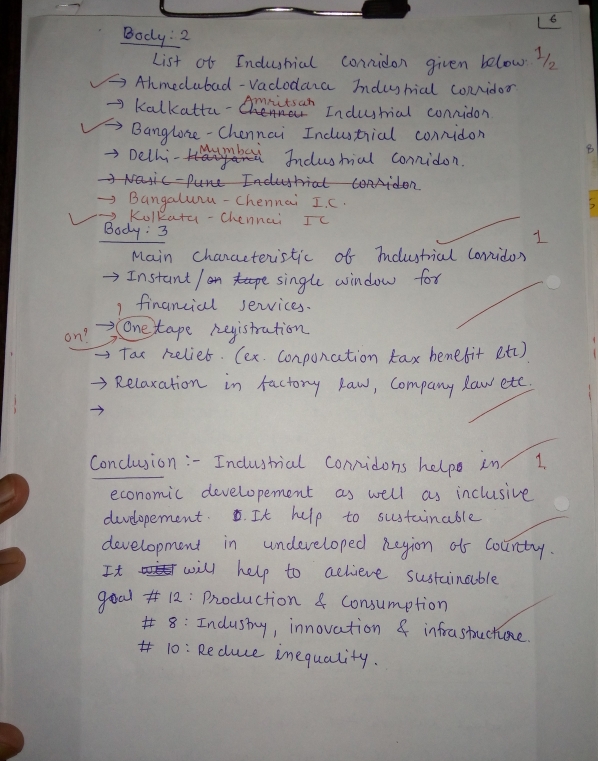 6
Body: 2
List of Industrial Corridor given below: 1/2
→ Ahmedabad - Vadodara Industrial corridor
→ Kalkatta - Chennai Amritsar Industrial corridor
→ Banglore - Chennai Industrial corridor
→ Delhi - Haryana Mumbai Industrial Corridor.
→ Nasic - Pune Industrial corridor
→ Bangaluru - Chennai I.C.
→ Kolkata - Chennai IC
Body: 3
Main Characteristic of Industrial Corridor 1
→ Instant / on tape single window for
financial services.
→ One tape registration
on?
→ Tax relief. (ex. Corporation tax benefit etc)
→ Relaxation in factory law, Company law etc.
→
Conclusion :- Industrial Corridors helps in 1
economic developement as well as inclusive
devlopement. It help to sustainable
development in undeveloped region of Country.
It will help to achieve sustainable
goal # 12 : Production & Consumption
# 8 : Industry, innovation & infrastructure.
# 10 : Reduce inequality.